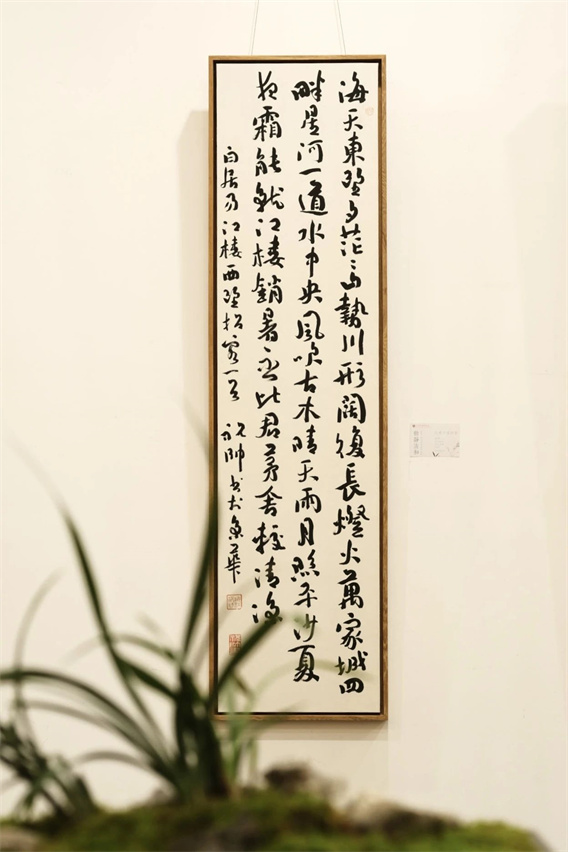 海天東望夕茫〻山勢川形闊復長燈火萬家城四
畔星河一道水中央風吹古木晴天雨月照平沙夏
夜霜能就江樓銷暑否比君茅舍較清涼
白居易江樓西望招客一首 祝帥书於京華